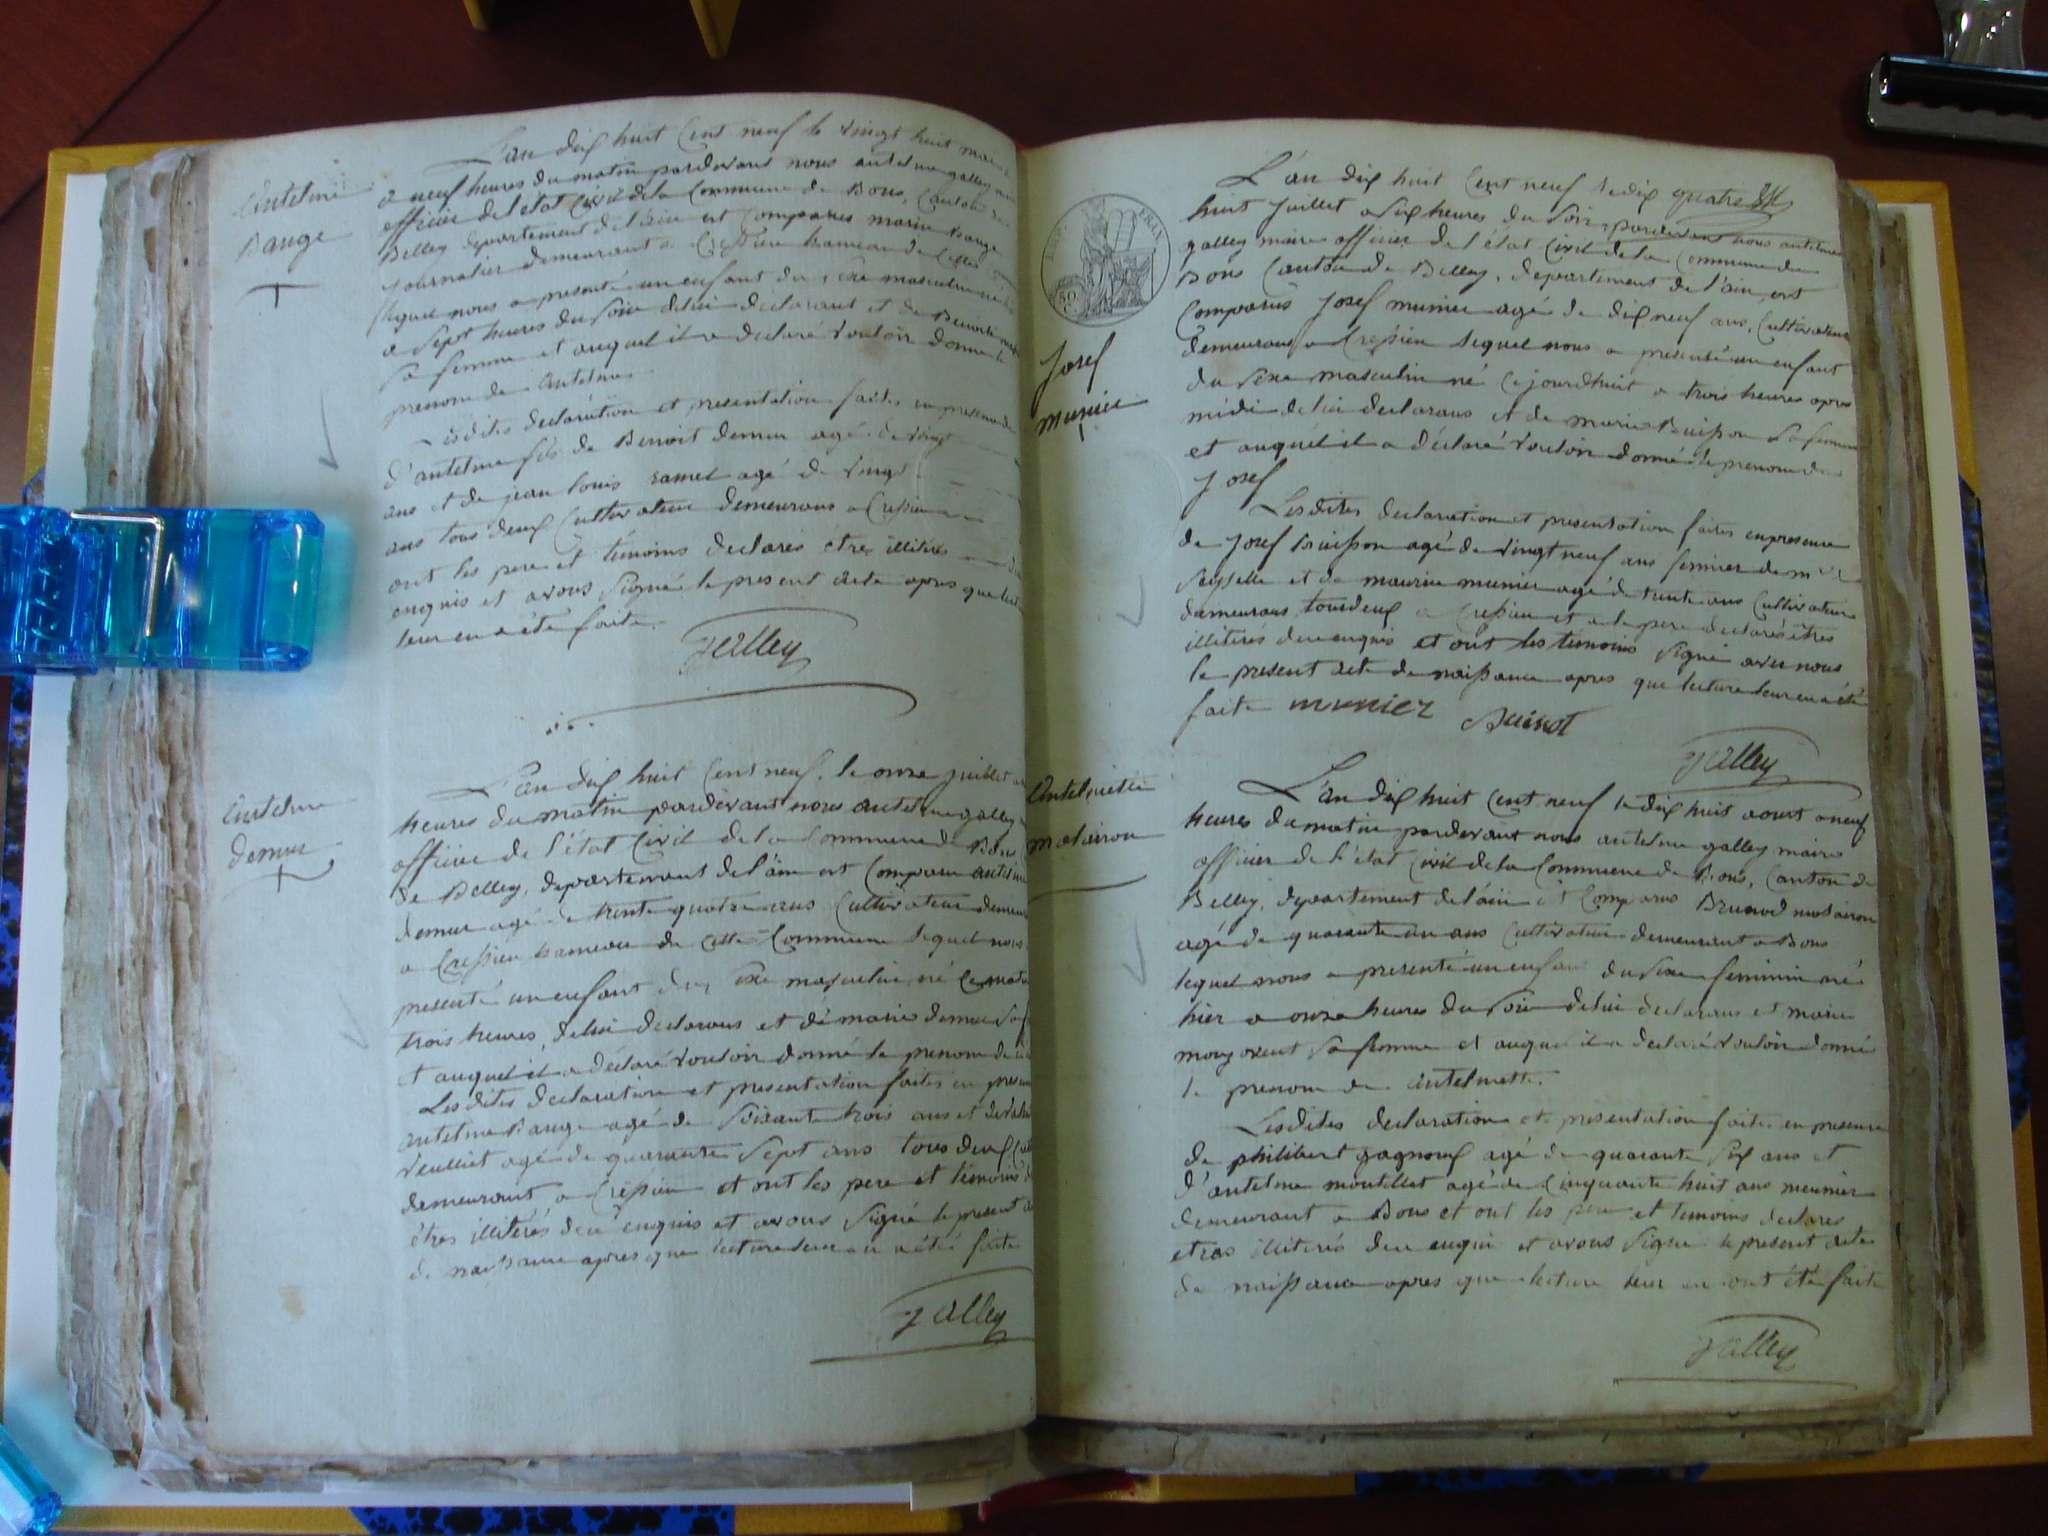 Antelme
Bauge
L'an dix huit Cent neuf le vingt huit
a neuf heures du matin pardevant nous antelme galley
officier de l'etat Civil de la Commune de Bons, Canton de
Belley departement de l'ain est Comparus marin Bauge
journalier demeurant a Cressieu hameau de Cette
lequel nous a presenté un enfant du sexe masculin né
a sept heures du soir de lui declarant et de Benoite
sa femme et auquel il a declaré vouloir donner le
prenom de Antelme
Lesdites declaration et presentation faites en presence
d'antelme fils de Benoit demeur agé de vingt
ans et de jean louis ramel agé de vingt
ans tous deux Cultivateur demeurans a Cressieu
ont les pere et témoins declarés etres illiterés
enquis et avons signé le present acte apres que lecture
leur en a été faite.
galley
Antelme
demeur
L'an dix huit Cent neuf, le onze juillet
heures du matin pardevant nous antelme galley
officier de l'état Civil de la Commune de Bons
de Belley, departement de l'ain est Comparu antelme
demeur agé de trente quatre ans Cultivateur demeurant
a Cressieu hameau de Cette Commune lequel nous
presenté un enfant du sexe masculin, né Ce matin
trois heures, de lui declarans et de marie demeur sa
et auquel il a declaré vouloir donné le prenom de
Lesdites declaration et presentation faites en presence
antelme Bauge agé de soixante trois ans et de
veulliet agé de quarante sept ans tous deux
demeurant a Cressieu et ont les pere et témoins
êtres illiterés de ce enquis et avons signé le present
de naissance apres que lecture leur en a été faite
galley
Josef
munier
L'an dix huit Cent neuf le dix quatre
huit juillet a six heures du soir, pardevant nous antelme
galley maire officier de l'état Civil de la Commune de
Bons Canton de Belley, departement de l'ain, est
Comparus Josef munier agé de dix neuf ans, Cultivateur
demeurant a Cressieu lequel nous a presenté un enfant
du sexe masculin né Cejourdhuit a trois heures apres
midi de lui declarans et de marie Buisson sa femme
et auquel il a déclaré vouloir donné le prenom de
Josef
Lesdites declaration et presentation faites en presence
de Josef Buisson agé de vingt neuf ans fermier de
Seysselle et de maurice munier agé de trente ans Cultivateur
demeurans tous deux a Cressieu et a le pere declaré êtres
illiterés de ce enquis et ont les temoins signé avec nous
le present acte de naissance apres que lecture leur en a été
faite munier
galley
Antelmette
molairon
L'an dix huit Cent neuf le dix huit aoust a neuf
heures du matin pardevant nous antelme galley maire
officier de l'état Civil de la Commune de Bons, Canton de
Belley, departement de l'ain est Comparus Brunod molairon
agé de quarante un ans Cultivateur demeurant a Bons
lequel nous a presenté un enfant du sexe feminin né
hier a onze heures du soir de lui declarans et marie
sa femme et auquel il a declaré vouloir donné
le prenom de antelmette.
Lesdites declaration et presentation faite en presence
de philibert gagneux agé de quarante six ans et
d'antelme montillet agé de Cinquante huit ans meunier
demeurant a Bons et ont les pere et temoins declares
etres illiterés de ce enqui et avons signe le present acte
de naissance apres que lecture leur en ont été faite
galley